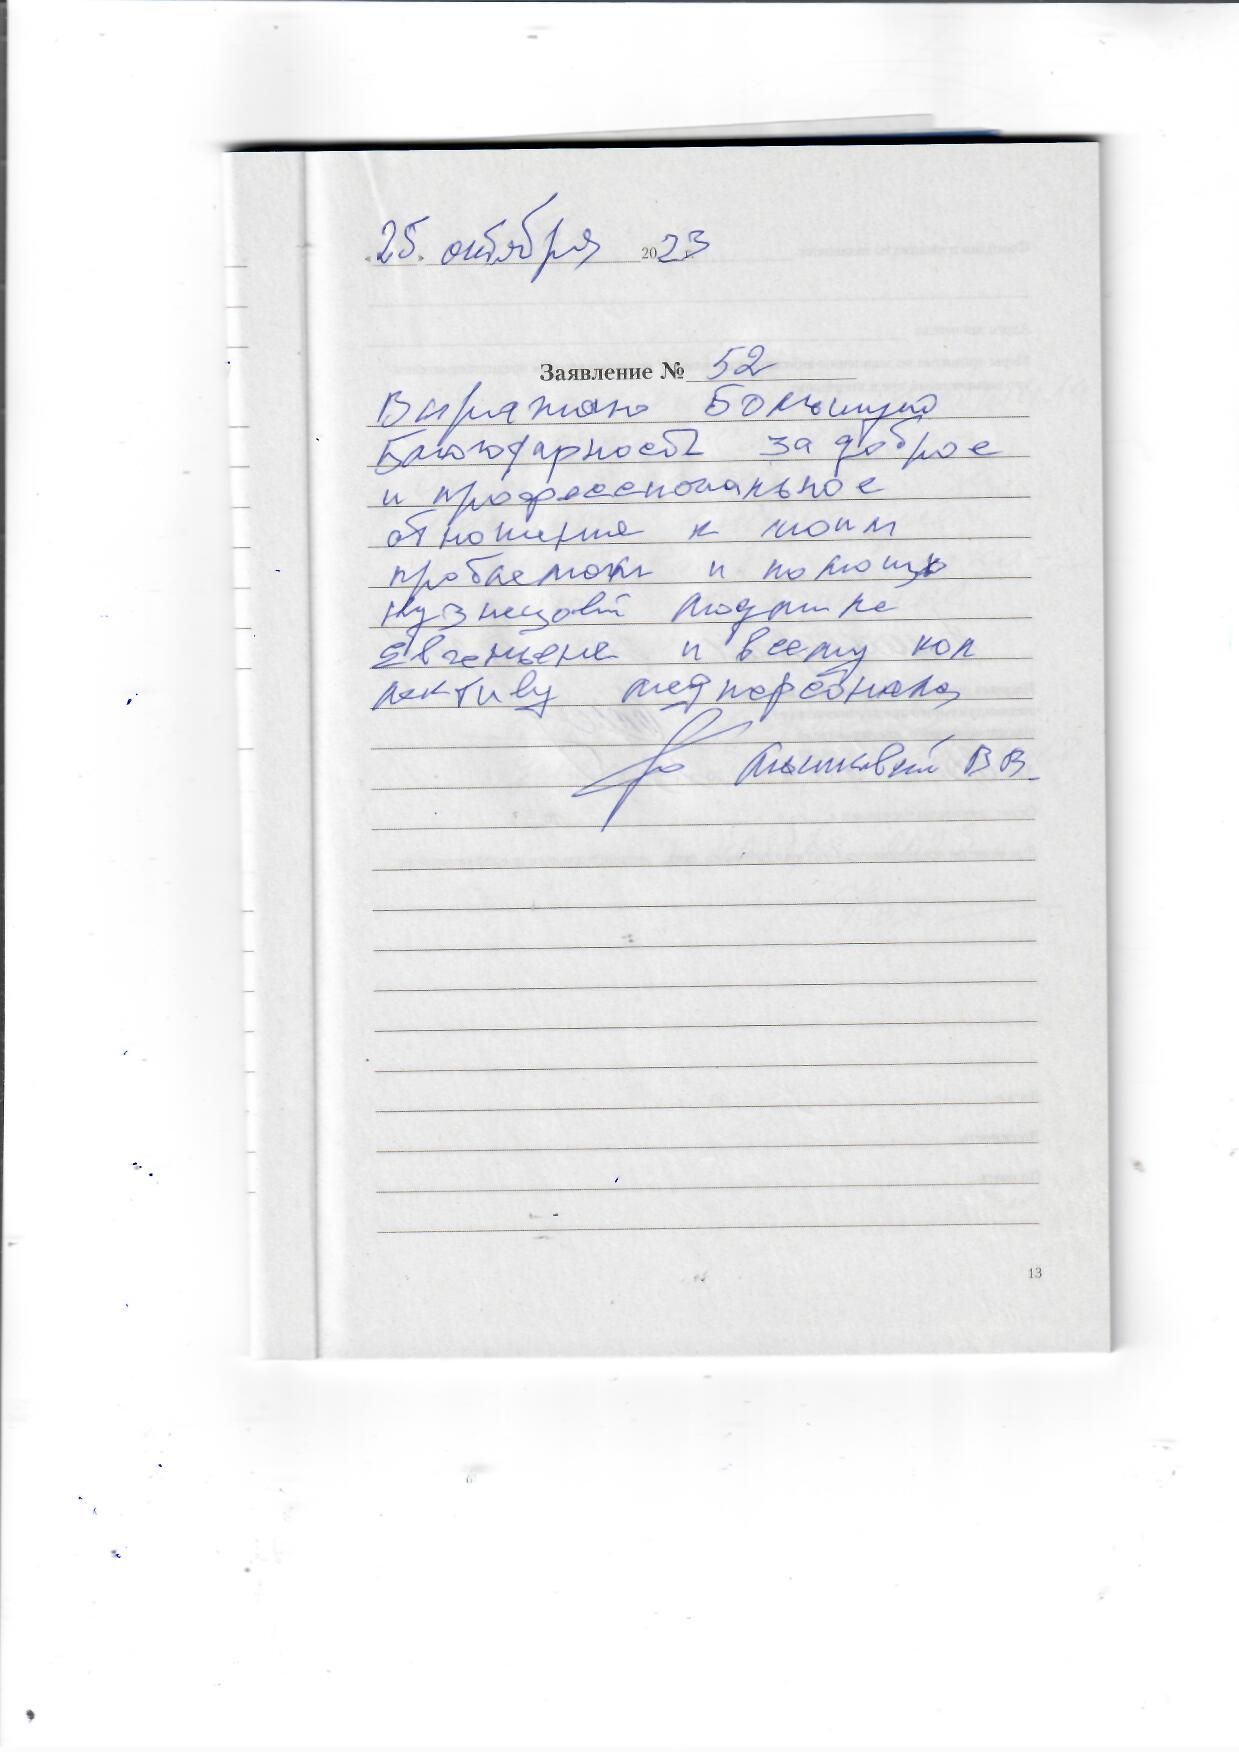 «25» октября 2023 г.
Заявление № 52
Выражаю большую
благодарность за доброе
и профессиональное
отношение к моим
проблемам и помощь
Кузнецовой Людмиле
Евгеньевне и всему кол
лективу медперсонала
В В
13